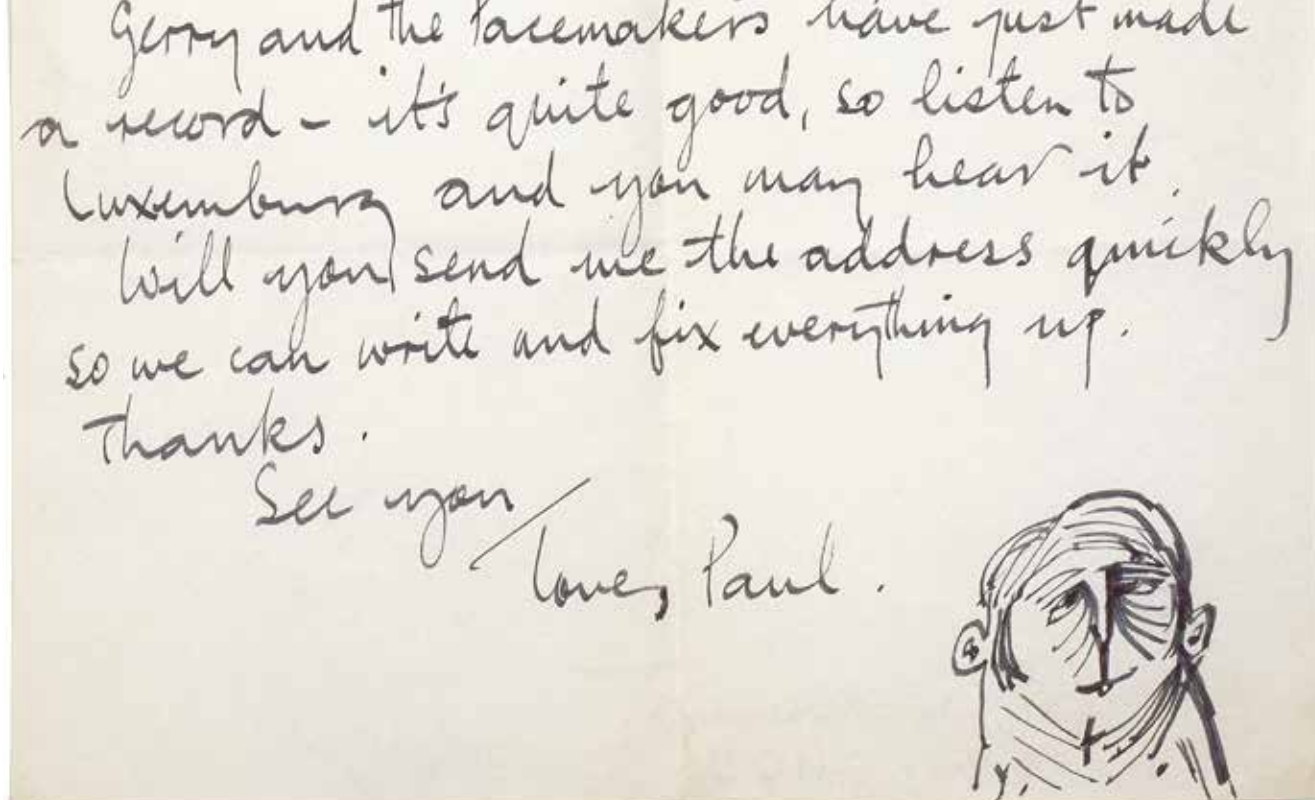 Gerry and the Pacemakers have just made
a record - it's quite good, so listen to
Luxemburg and you may hear it.
Will you send me the address quickly
so we can write and fix everything up.
Thanks.
See you
Love, Paul.